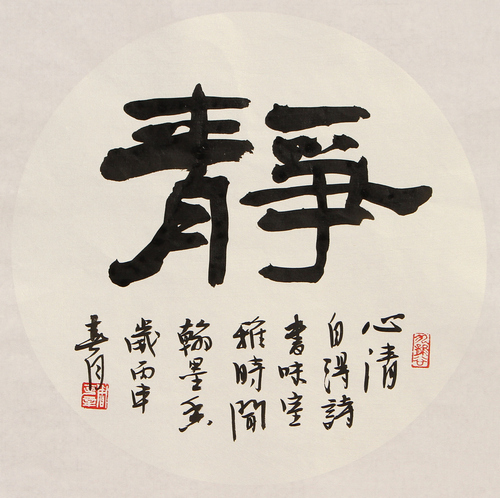 靜
心清
自得詩
書味室
雅時聞
翰墨香
歲丙申
春月